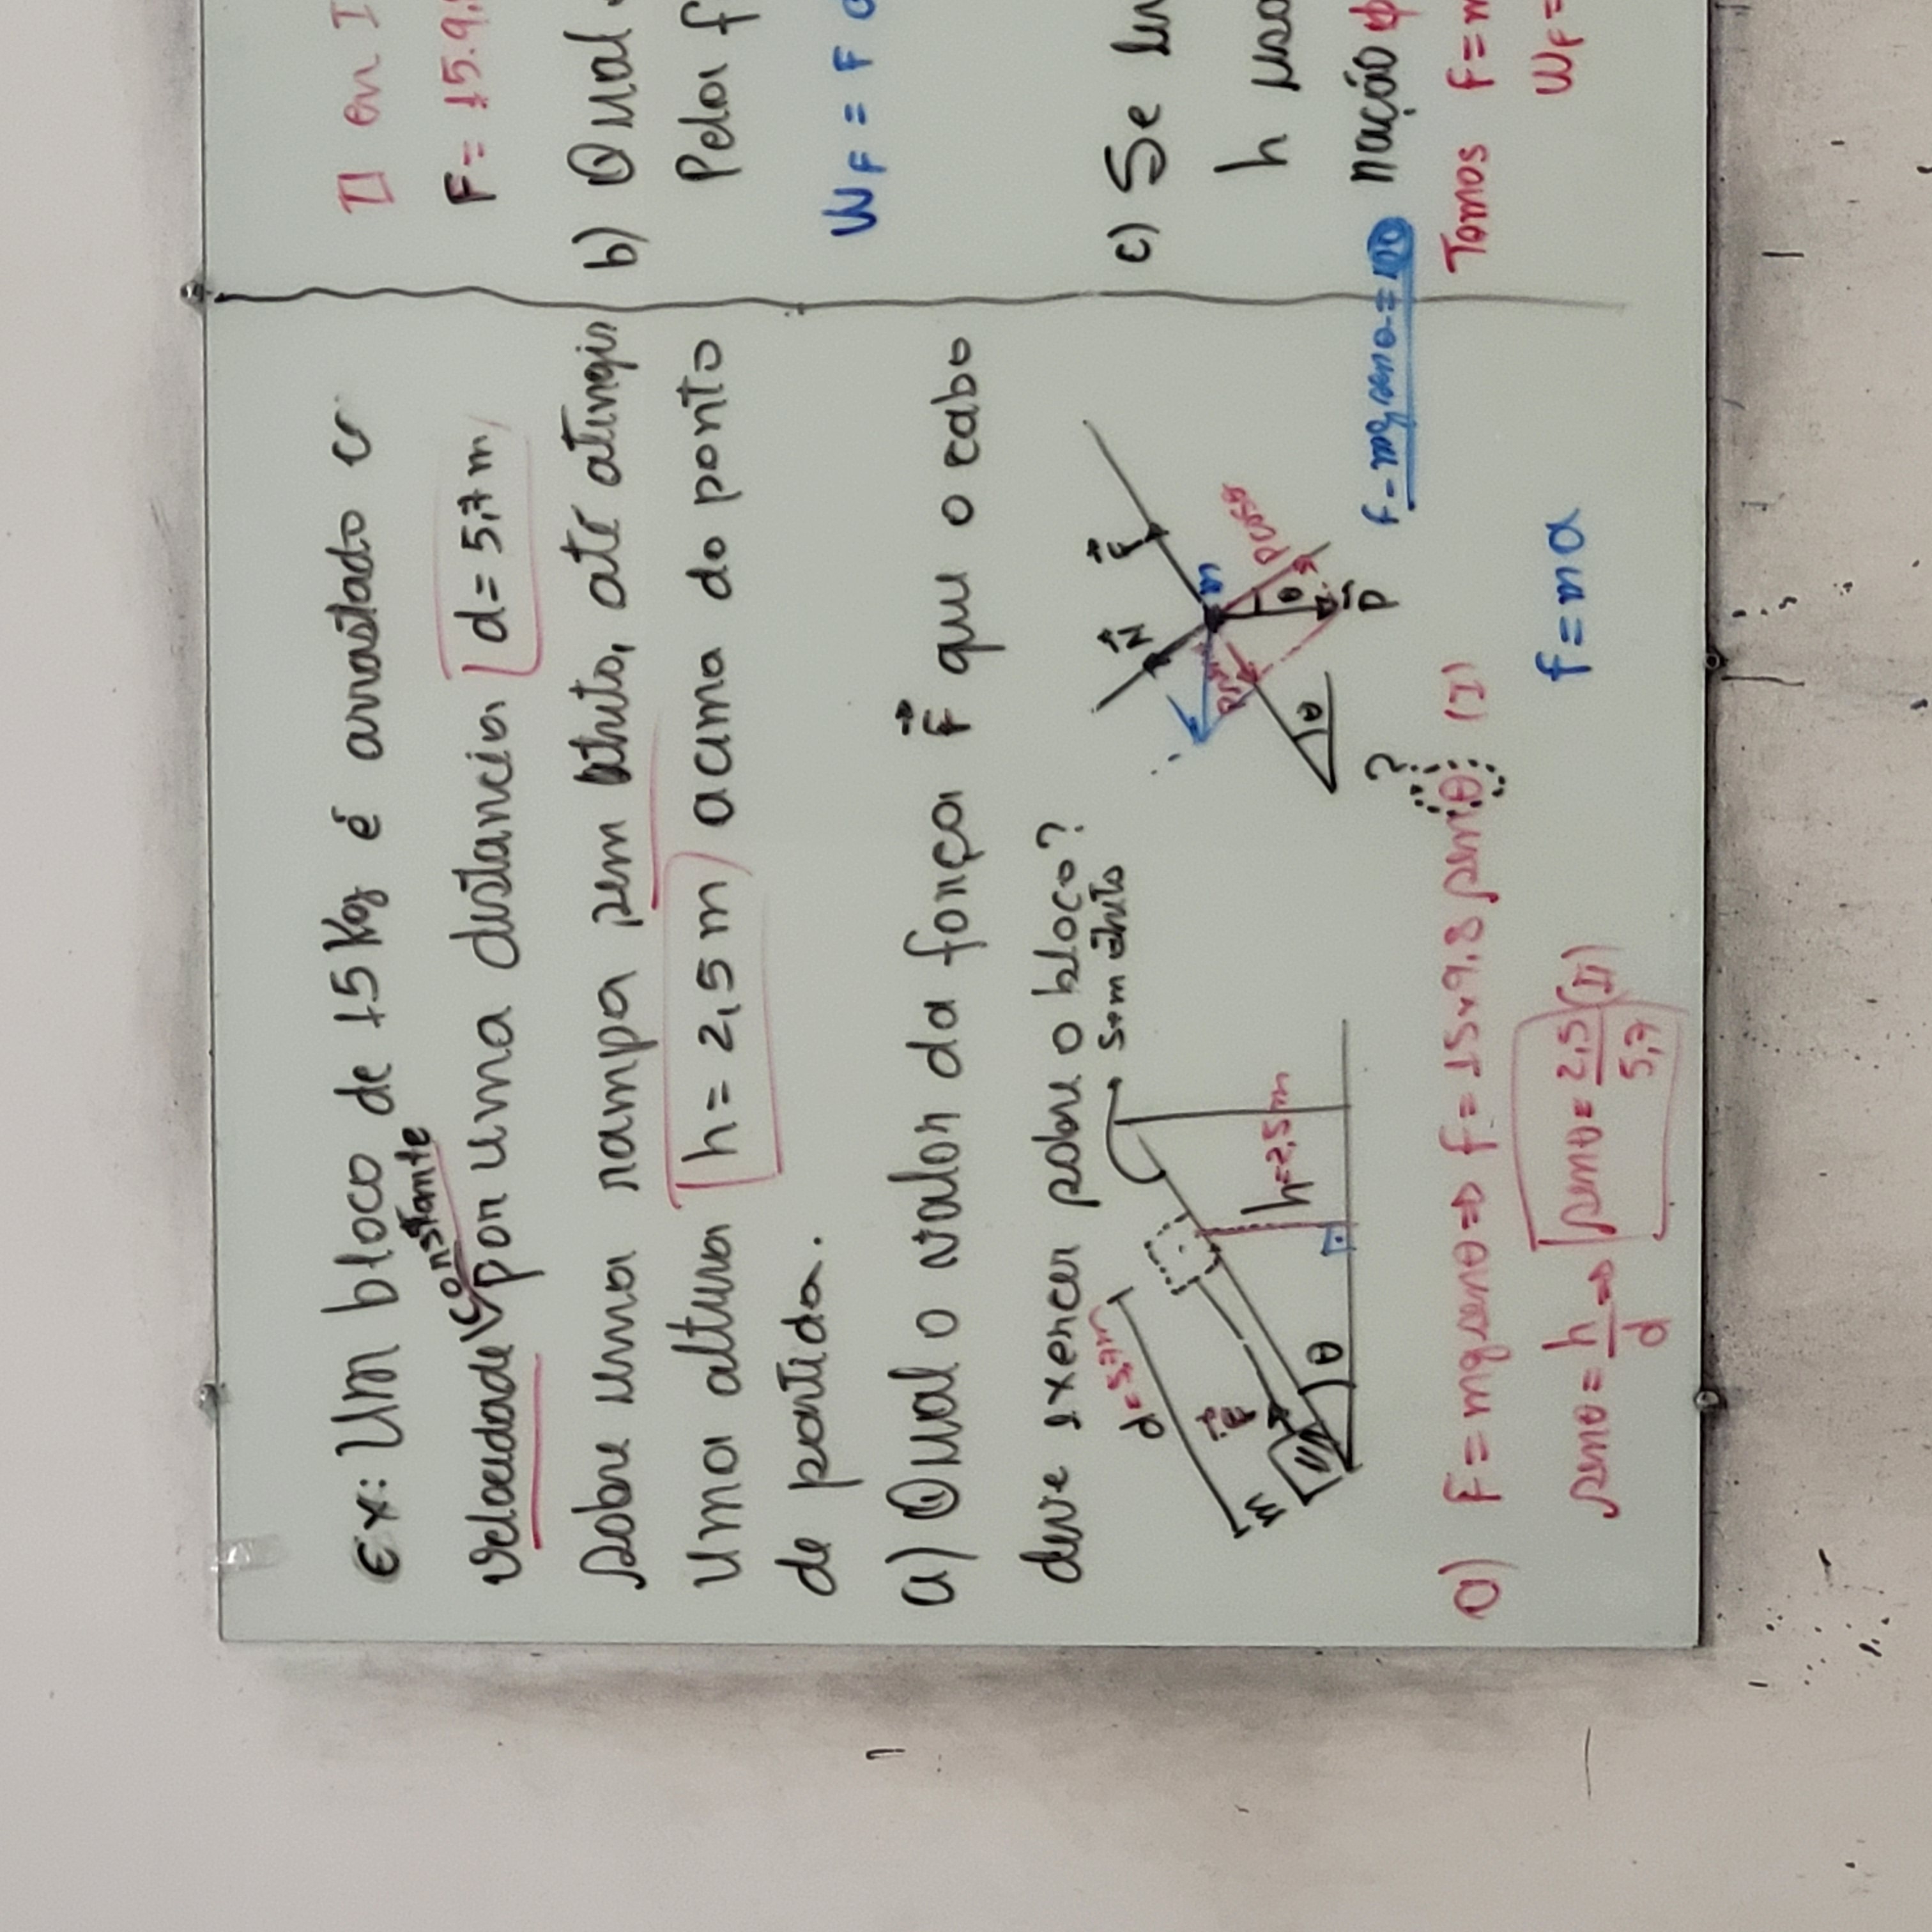 Ex: Um bloco de 15 Kg é arrastado
velocidade constante
por uma distancia d = 5,7 m
sobre uma rampa sem atrito, até atingir
uma altura h = 2,5 m acima do ponto
de partida.
a) Qual o valor da força F⃗ que o cabo
deve exercer sobre o bloco?
sem atrito
d = 5,7m
m
F⃗
θ
h=2,5m
N⃗
F⃗
m
P cosθ
θ
P⃗
θ
a) F = mg senθ ⇒ F = 15×9,8 senθ ; (I)
?
senθ = h/d ⇒ senθ = 2,5/5,7 (II)
F = ma
II em I
F = 15.9,
b) Qual
Pela f
WF = F
c) Se
h
nação
Temos F = m
WF =